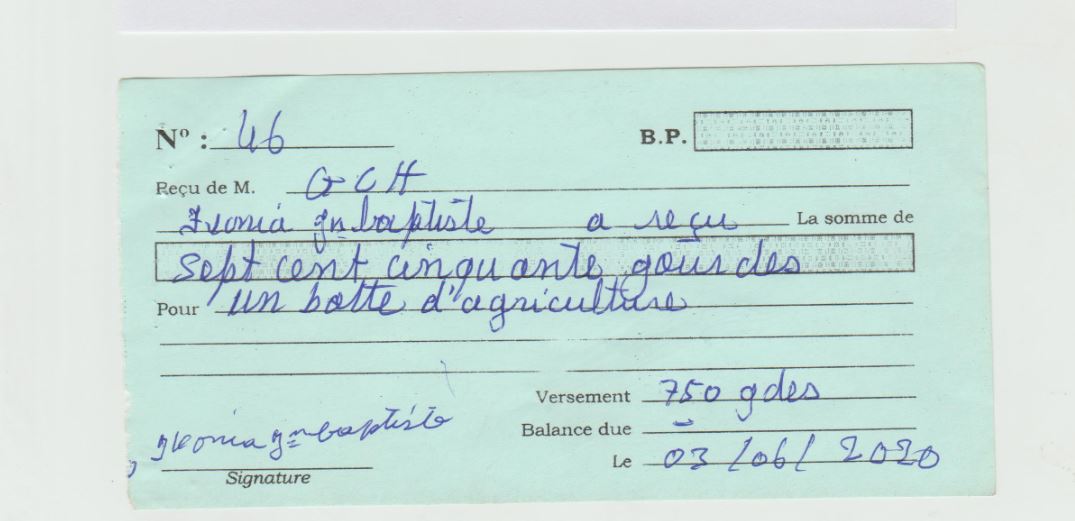 Nº : 46
B.P.
Reçu de M. GCH
Ivonia Jn baptiste a reçu La somme de
sept cent cinquante gourdes
Pour un botte d'agriculture
Versement 750 gdes
Balance due -
Le 03/06/2020
Ivonia Jn baptiste
Signature